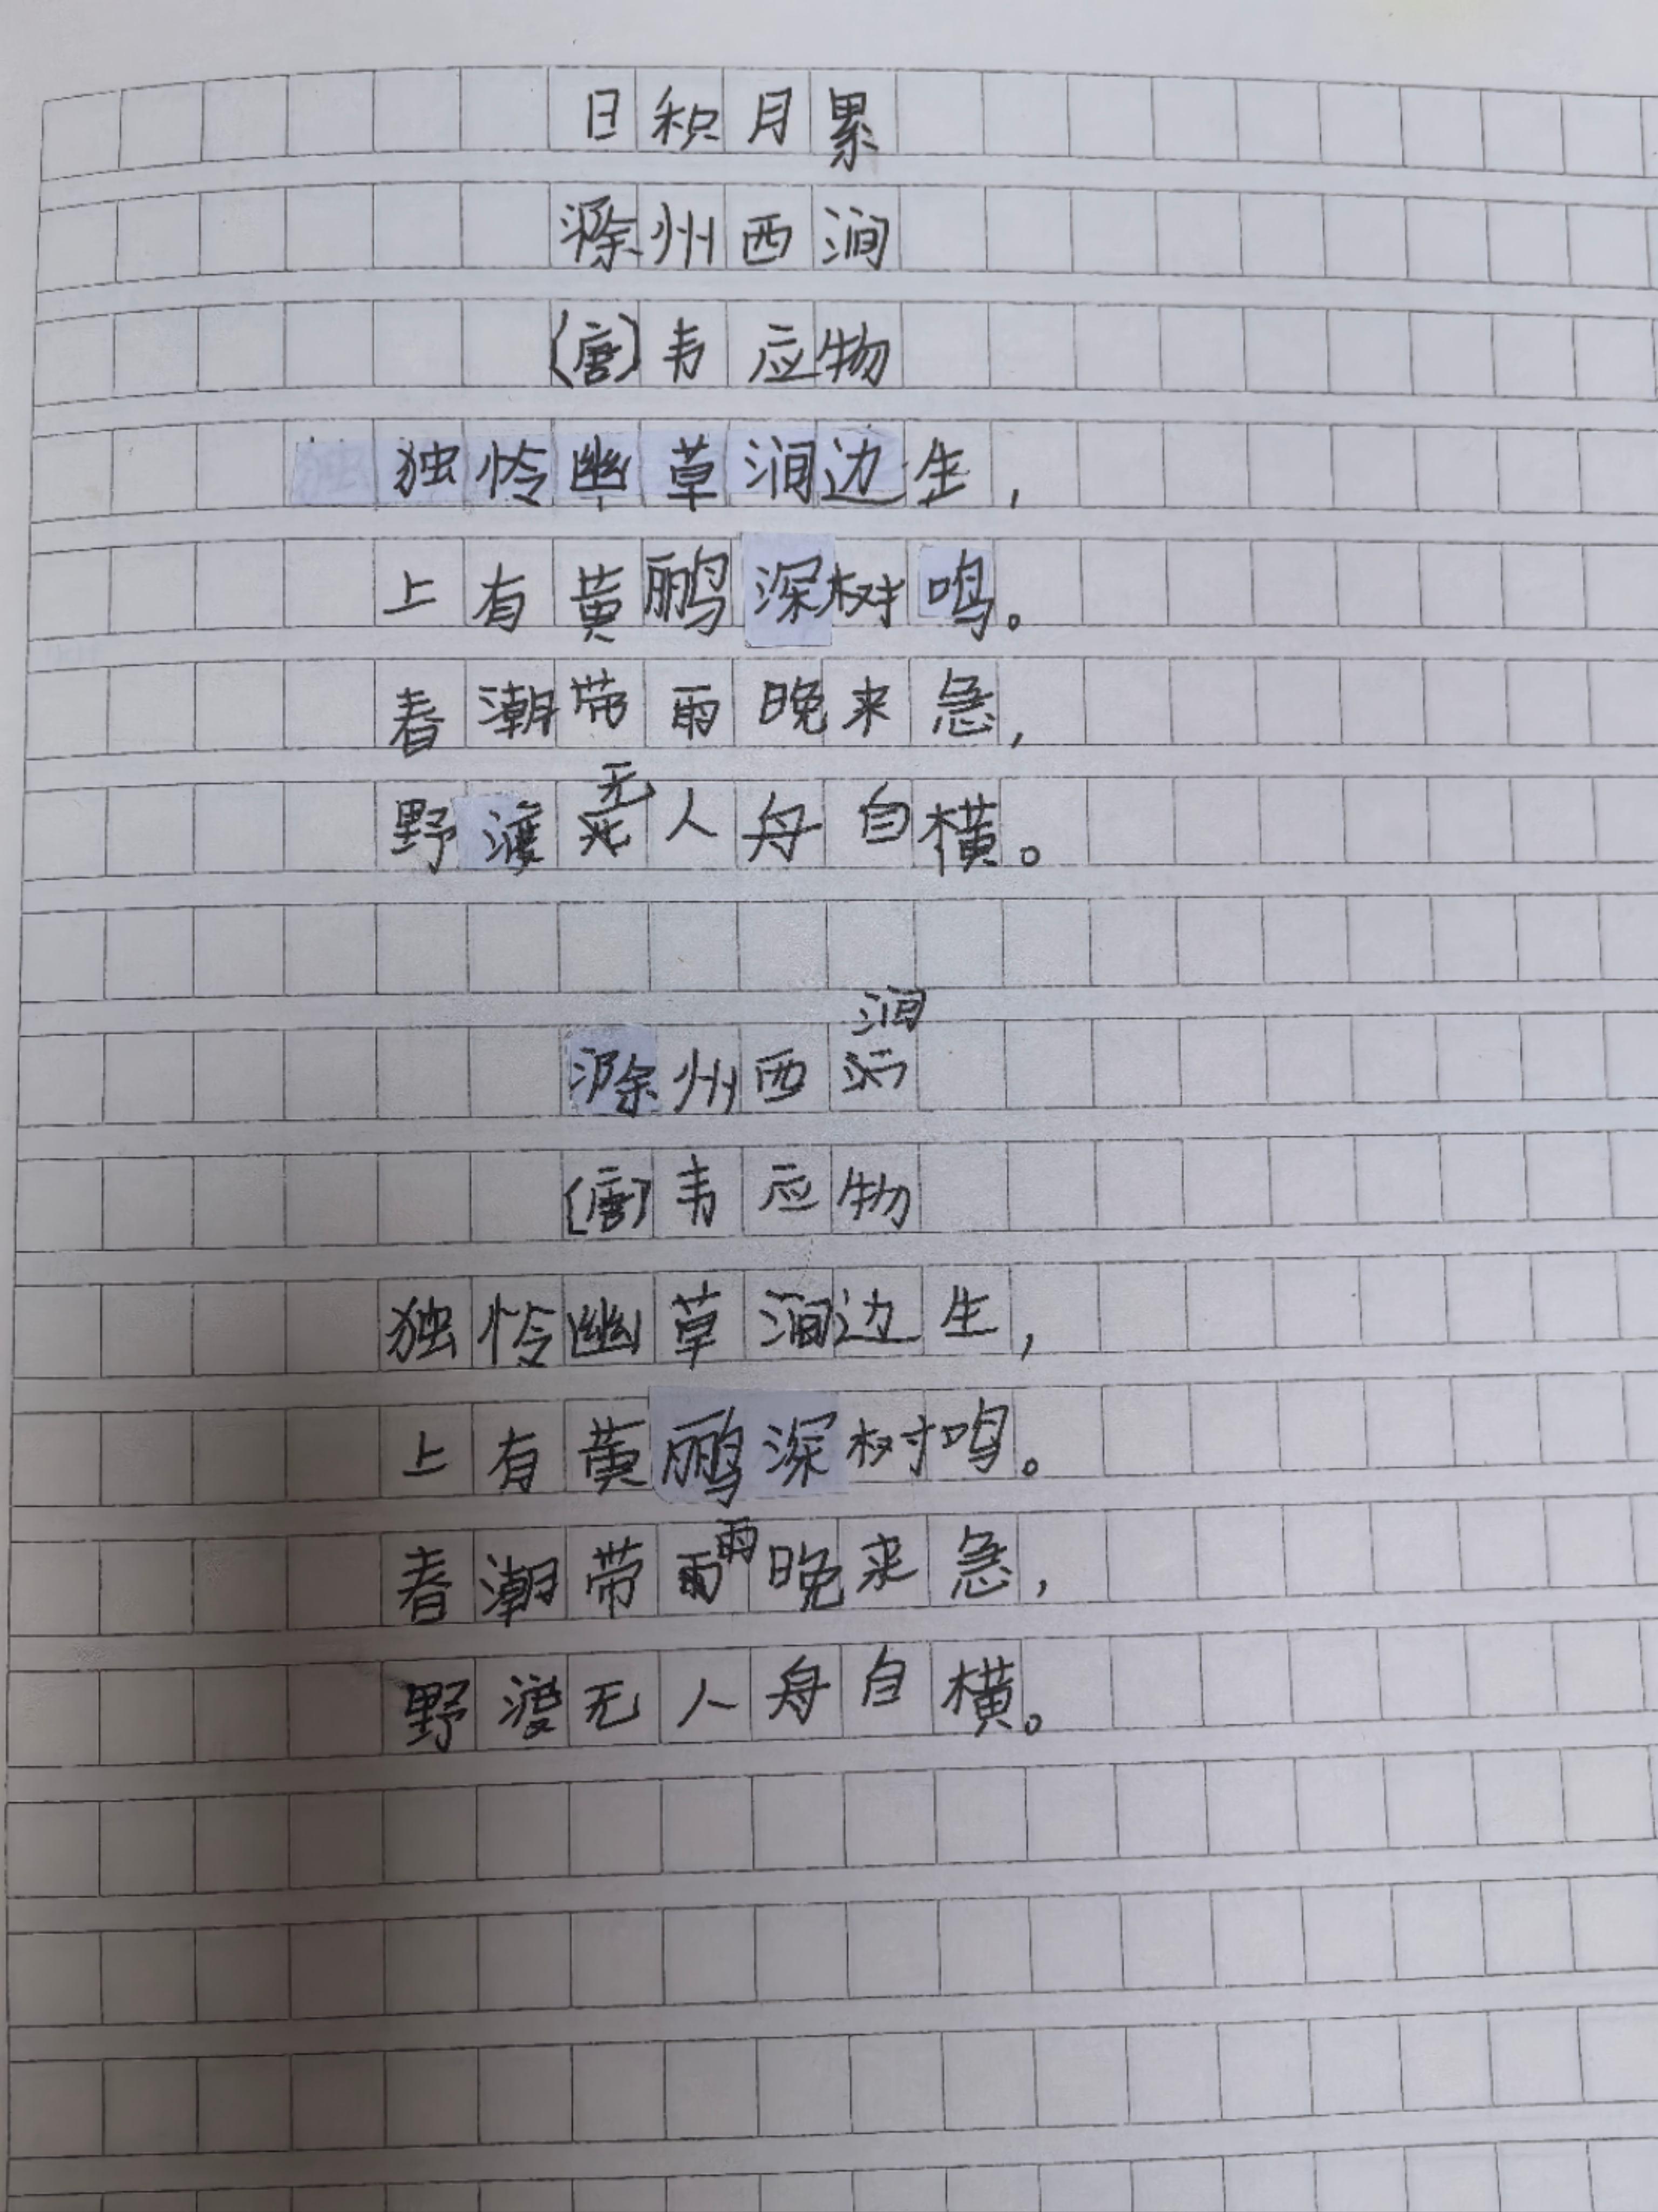 日积月累
滁州西涧
(唐)韦应物
独怜幽草涧边生,
上有黄鹂深树鸣。
春潮带雨晚来急,
野渡无人舟自横。
滁州西涧
(唐)韦应物
独怜幽草涧边生,
上有黄鹂深树鸣。
春潮带雨晚来急,
野渡无人舟自横。